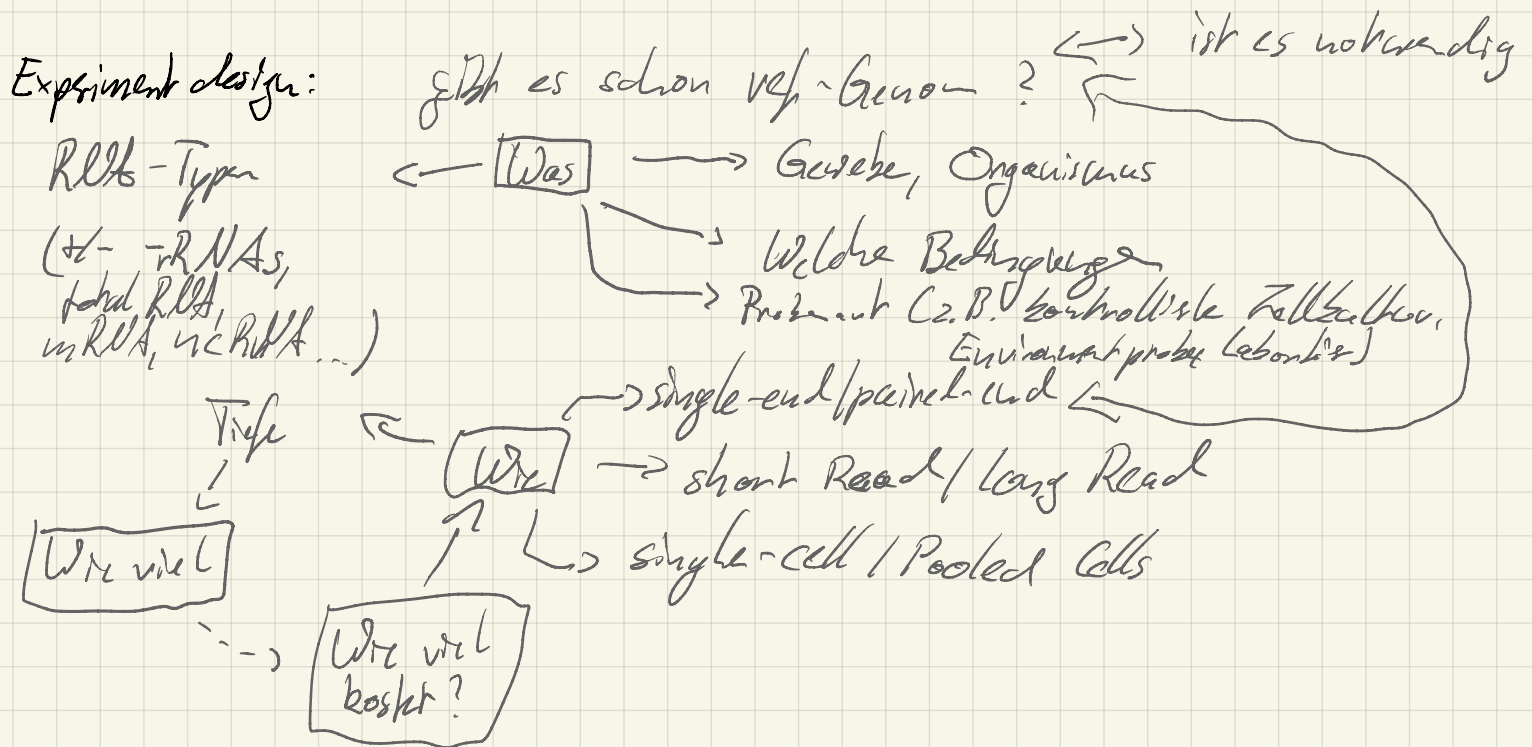 Experiment design:
gibt es schon ref-Genom ?
ist es notwendig
RNA-Typen
Was
Gewebe, Organismus
(+/- rRNAs,
total RNA,
mRNA, ncRNA...)
Welche Bedingungen
Probenart (z.B. kontrollierte Zellkultur,
Environmentprobe
single-end/paired-end
Tiefe
Wie
short Read / Long Read
Wie viel
single-cell / Pooled Cells
Wie viel
kostet?